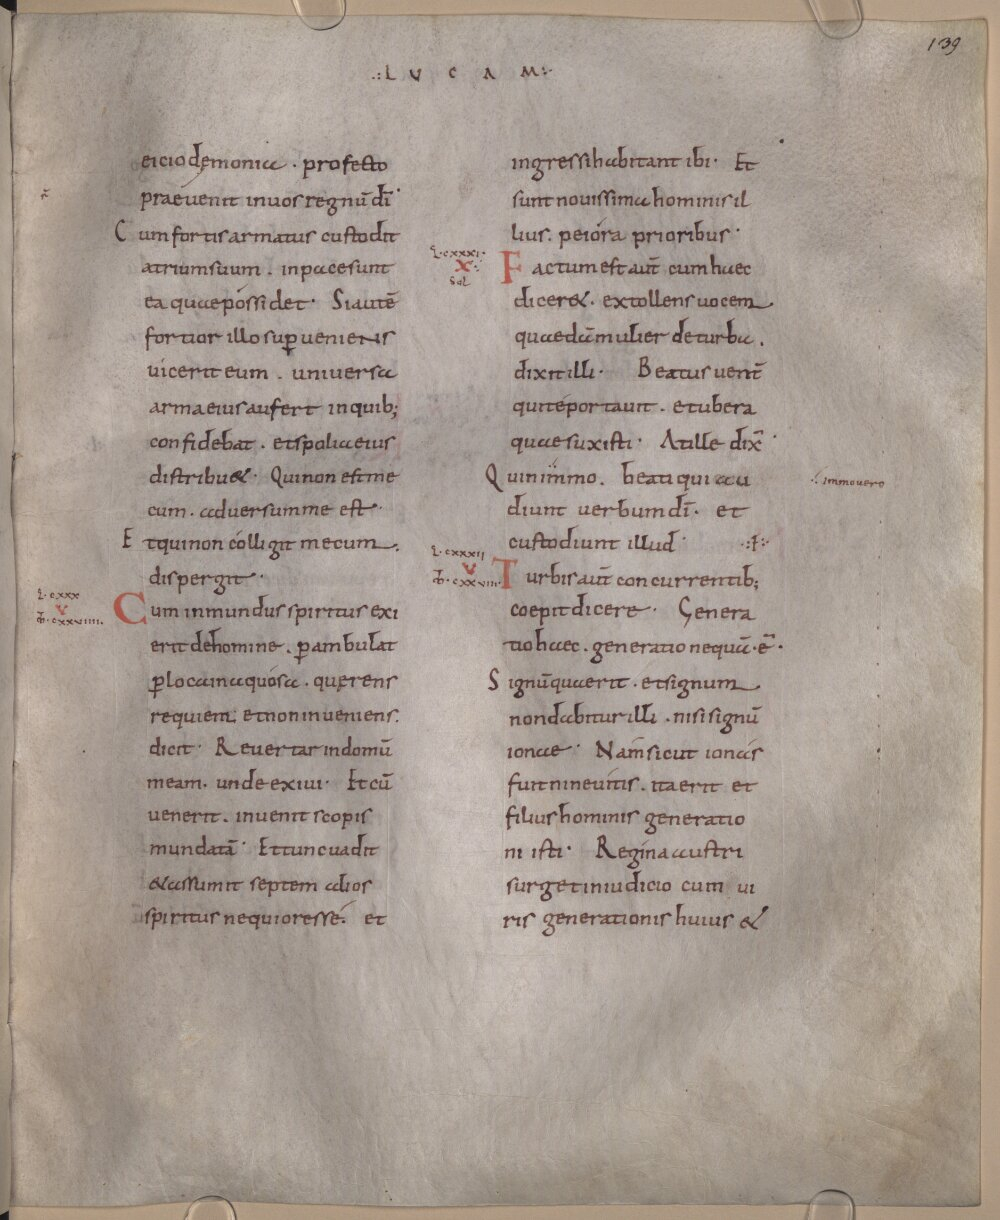 139
.:LVCAM:.
eicio dęmonia . profecto
praevenit in uos regnū dī.
Cum fortis armatus custodit
atrium suum . in pace sunt
ea quae possidet. Si autē
fortior illo sup̱ueniens
uicerit eum . universa
arma eius aufert in quib;
confidebat . et spolia eius
distribu&. Qui non est me
cum . aduersum me est.
Et qui non colligit mecum.
dispergit.
L. cxxx
v
M̄. cxxviiii.
Cum inmundus spiritus exi
erit de homine . p̱ambulat
p̱ loca inaquosa . quęrens
requiem; et non inueniens.
dicit. Revertar in domū
meam . unde exiui. Et cū
venerit . inuenit scopis
mundatā. Et tunc uadit
&assumit septem alios
spiritus nequiores se. et
ingressi habitant ibi. Et
sunt nouissima hominis il
lius . peiora prioribus.
L. cxxxi.
x.
Sol
Factum est aut̄ cum haec
dicer&. extollens uocem
quaedā mulier de turba.
dixit illi. Beatus uent̄
qui te portauit . et ubera
quae suxisti. At ille dix̄.
Quinimmo . beati qui au
immo uero
diunt verbum dī. et
custodiunt illud.
L. cxxxii
v
M̄. cxxviii.
Turbis aut̄ concurrentib;
coepit dicere. Genera
tio haec . generatio nequā . ē.
Signū quaerit . et signum
non dabitur illi . nisi signū
ionae. Nam sicut ionas
fuit ninevitis . ita erit et
filius hominis generatio
ni isti. Regina austri
surget in iudicio cum ui
ris generationis huius &